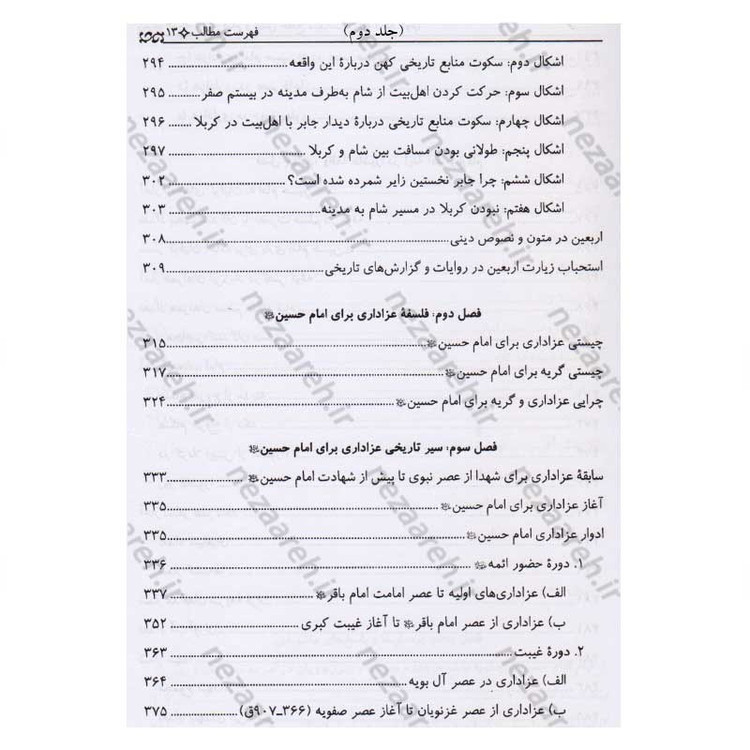 (جلد دوم) فهرست مطالب ۱۳
اشکال دوم: سکوت منابع تاریخی کهن دربارهٔ این واقعه ................ ۲۹۴
اشکال سوم: حرکت کردن اهل‌بیت از شام به‌طرف مدینه در بیستم صفر ........... ۲۹۵
اشکال چهارم: سکوت منابع تاریخی دربارهٔ دیدار جابر با اهل‌بیت در کربلا ........ ۲۹۶
اشکال پنجم: طولانی بودن مسافت بین شام و کربلا ................ ۲۹۷
اشکال ششم: چرا جابر نخستین زایر شمرده شده است؟ ................ ۳۰۲
اشکال هفتم: نبودن کربلا در مسیر شام به مدینه ................ ۳۰۳
اربعین در متون و نصوص دینی ................ ۳۰۸
استحباب زیارت اربعین در روایات و گزارش‌های تاریخی ................ ۳۰۹
فصل دوم: فلسفهٔ عزاداری برای امام حسین
چیستی عزاداری برای امام حسین ................ ۳۱۵
چیستی گریه برای امام حسین ................ ۳۱۷
چرایی عزاداری و گریه برای امام حسین ................ ۳۲۴
فصل سوم: سیر تاریخی عزاداری برای امام حسین
سابقهٔ عزاداری برای شهدا از عصر نبوی تا پیش از شهادت امام حسین ................ ۳۳۳
آغاز عزاداری برای امام حسین ................ ۳۳۵
ادوار عزاداری امام حسین ................ ۳۳۵
۱. دورهٔ حضور ائمه ................ ۳۳۶
الف) عزاداری‌های اولیه تا عصر امامت امام باقر ................ ۳۳۷
ب) عزاداری از عصر امام باقر تا آغاز غیبت کبری ................ ۳۵۲
۲. دورهٔ غیبت ................ ۳۶۳
الف) عزاداری در عصر آل بویه ................ ۳۶۴
ب) عزاداری از عصر غزنویان تا آغاز عصر صفویه (۳۶۶ـ۹۰۷ق) ................ ۳۷۵
nezaareh.ir